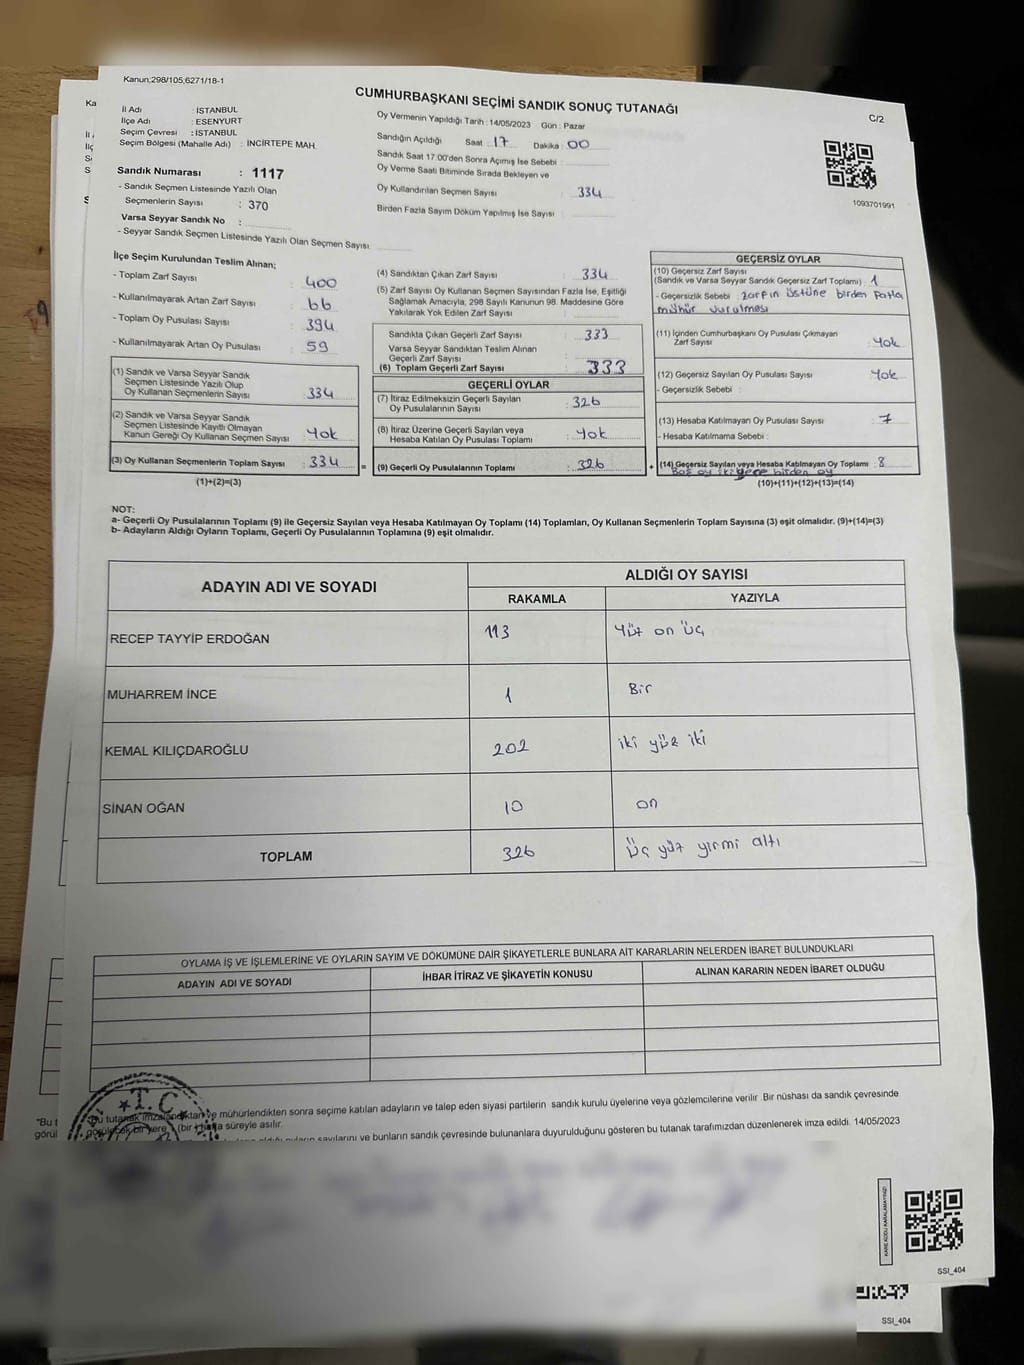 Kanun:298/105,6271/18-1
CUMHURBAŞKANI SEÇİMİ SANDIK SONUÇ TUTANAĞI
C/2
İl Adı : İSTANBUL
İlçe Adı : ESENYURT
Seçim Çevresi : İSTANBUL
Seçim Bölgesi (Mahalle Adı) : İNCİRTEPE MAH.
Sandık Numarası : 1117
- Sandık Seçmen Listesinde Yazılı Olan
Seçmenlerin Sayısı : 370
Varsa Seyyar Sandık No :
- Seyyar Sandık Seçmen Listesinde Yazılı Olan Seçmen Sayısı:
Oy Vermenin Yapıldığı Tarih : 14/05/2023 Gün : Pazar
Sandığın Açıldığı Saat : 17 Dakika : 00
Sandık Saat 17:00'den Sonra Açımış İse Sebebi :
Oy Verme Saati Bitiminde Sırada Bekleyen ve
Oy Kullandırılan Seçmen Sayısı : 334
Birden Fazla Sayım Döküm Yapılmış İse Sayısı :
1093701991
İlçe Seçim Kurulundan Teslim Alınan;
- Toplam Zarf Sayısı : 400
- Kullanılmayarak Artan Zarf Sayısı : 66
- Toplam Oy Pusulası Sayısı : 394
- Kullanılmayarak Artan Oy Pusulası : 59
(1) Sandık ve Varsa Seyyar Sandık
Seçmen Listesinde Yazılı Olup
Oy Kullanan Seçmenlerin Sayısı : 334
(2) Sandık ve Varsa Seyyar Sandık
Seçmen Listesinde Kayıtlı Olmayan
Kanun Gereği Oy Kullanan Seçmen Sayısı : Yok
(3) Oy Kullanan Seçmenlerin Toplam Sayısı : 334
(1)+(2)=(3)
(4) Sandıktan Çıkan Zarf Sayısı : 334
(5) Zarf Sayısı Oy Kullanan Seçmen Sayısından Fazla İse, Eşitliği
Sağlamak Amacıyla, 298 Sayılı Kanunun 98. Maddesine Göre
Yakılarak Yok Edilen Zarf Sayısı :
Sandıkta Çıkan Geçerli Zarf Sayısı : 333
Varsa Seyyar Sandıktan Teslim Alınan
Geçerli Zarf Sayısı :
(6) Toplam Geçerli Zarf Sayısı : 333
GEÇERLİ OYLAR
(7) İtiraz Edilmeksizin Geçerli Sayılan
Oy Pusulalarının Sayısı : 326
(8) İtiraz Üzerine Geçerli Sayılan veya
Hesaba Katılan Oy Pusulası Toplamı : Yok
= (9) Geçerli Oy Pusulalarının Toplamı : 326
GEÇERSİZ OYLAR
(10) Geçersiz Zarf Sayısı
(Sandık ve Varsa Seyyar Sandık Geçersiz Zarf Toplamı) : 1
- Geçersizlik Sebebi : zarfın üstüne birden fazla
mühür vurulması
(11) İçinden Cumhurbaşkanı Oy Pusulası Çıkmayan
Zarf Sayısı : Yok
(12) Geçersiz Sayılan Oy Pusulası Sayısı : Yok
- Geçersizlik Sebebi :
(13) Hesaba Katılmayan Oy Pusulası Sayısı : 7
- Hesaba Katılmama Sebebi :
+ (14) Geçersiz Sayılan veya Hesaba Katılmayan Oy Toplamı : 8
Boş oy birden oy
(10)+(11)+(12)+(13)=(14)
NOT:
a- Geçerli Oy Pusulalarının Toplamı (9) ile Geçersiz Sayılan veya Hesaba Katılmayan Oy Toplamı (14) Toplamları, Oy Kullanan Seçmenlerin Toplam Sayısına (3) eşit olmalıdır. (9)+(14)=(3)
b- Adayların Aldığı Oyların Toplamı, Geçerli Oy Pusulalarının Toplamına (9) eşit olmalıdır.
ADAYIN ADI VE SOYADI
ALDIĞI OY SAYISI
RAKAMLA YAZIYLA
RECEP TAYYİP ERDOĞAN 113 Yüz on üç
MUHARREM İNCE 1 Bir
KEMAL KILIÇDAROĞLU 202 iki yüz iki
SİNAN OĞAN 10 on
TOPLAM 326 Üç yüz yirmi altı
OYLAMA İŞ VE İŞLEMLERİNE VE OYLARIN SAYIM VE DÖKÜMÜNE DAİR ŞİKAYETLERLE BUNLARA AİT KARARLARIN NELERDEN İBARET BULUNDUKLARI
ADAYIN ADI VE SOYADI İHBAR İTİRAZ VE ŞİKAYETİN KONUSU ALINAN KARARIN NEDEN İBARET OLDUĞU
T.C
"Bu tutanak imzalandıktan ve mühürlendikten sonra seçime katılan adayların ve talep eden siyasi partilerin sandık kurulu üyelerine veya gözlemcilerine verilir .Bir nüshası da sandık çevresinde
görülebilecek bir yere (bir) hafta süreyle asılır.
oyların sayılarını ve bunların sandık çevresinde bulunanlara duyurulduğunu gösteren bu tutanak tarafımızdan düzenlenerek imza edildi. 14/05/2023
KARE KODU KARALAMAYINIZ!
SSI_404
SSI_404